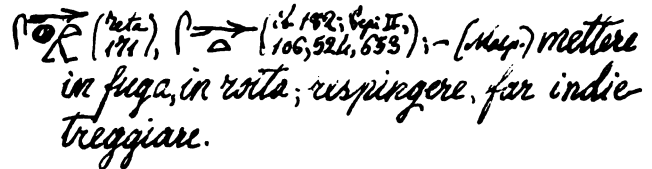 (reta 171), (id 182; Sepi II, 106,524,653); - (Masp.) mettere
in fuga, in rotta; respingere, far indie-
treggiare.